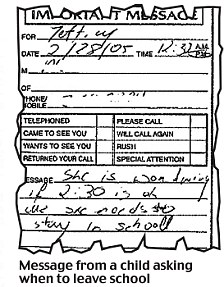 IMPORTANT MESSAGE
FOR
DATE 2/28/05 TIME 12:32 A.M. P.M.
M
OF
PHONE/
MOBILE
TELEPHONED PLEASE CALL
CAME TO SEE YOU WILL CALL AGAIN
WANTS TO SEE YOU RUSH
RETURNED YOUR CALL SPECIAL ATTENTION
MESSAGE She is wondering
if 2:30 is ok
she needs to
stay in school
Message from a child asking
when to leave school